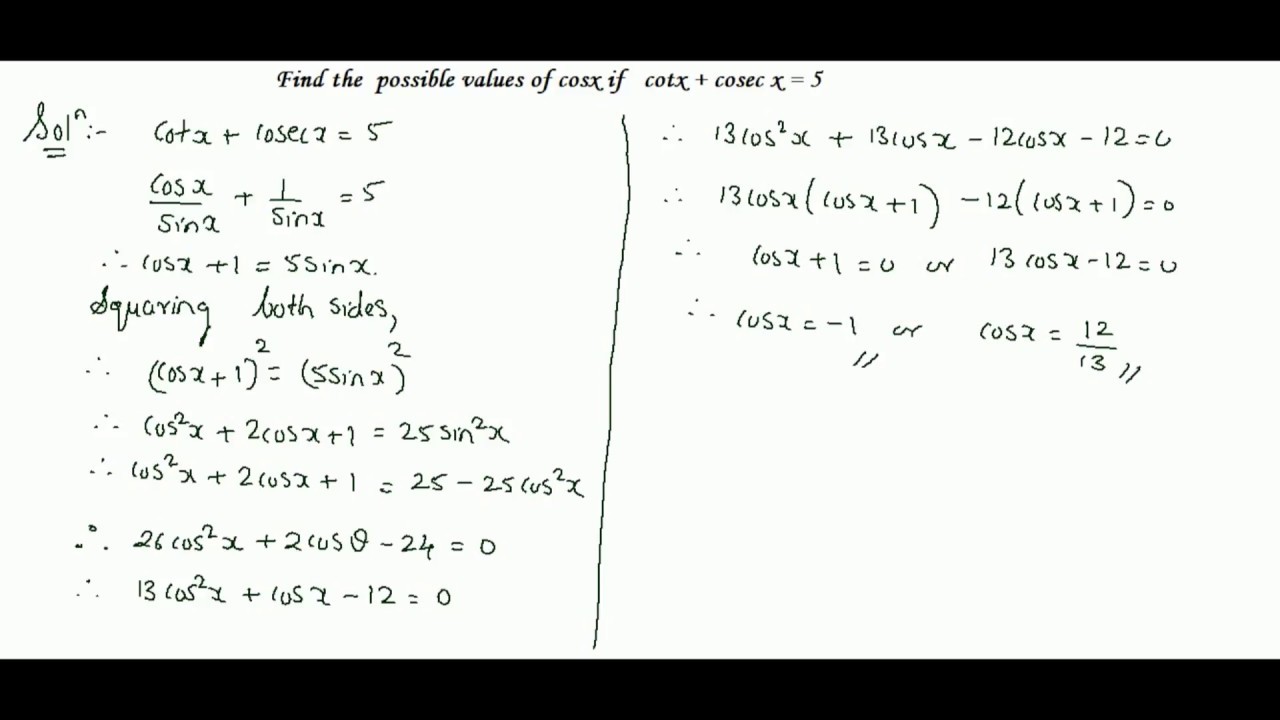 Find the possible values of cosx if cotx + cosec x = 5
Solⁿ:- cotx + cosecx = 5
cosx/sinx + 1/sinx = 5
∴ cosx + 1 = 5sinx.
Squaring both sides,
∴ (cosx + 1)² = (5sinx)²
∴ cos²x + 2cosx + 1 = 25sin²x
∴ cos²x + 2cosx + 1 = 25 - 25cos²x
∴ 26cos²x + 2cosθ - 24 = 0
∴ 13cos²x + cosx - 12 = 0
∴ 13cos²x + 13cosx - 12cosx - 12 = 0
∴ 13cosx(cosx + 1) - 12(cosx + 1) = 0
∴ cosx + 1 = 0 or 13cosx - 12 = 0
∴ cosx = -1 // or cosx = 12/13 //